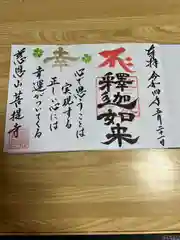 奉拝 令和四年三月二十一日
釋迦如来
幸
心で思うことは
実現する
正しい心には
幸運がついてくる
慈恩山菩提寺